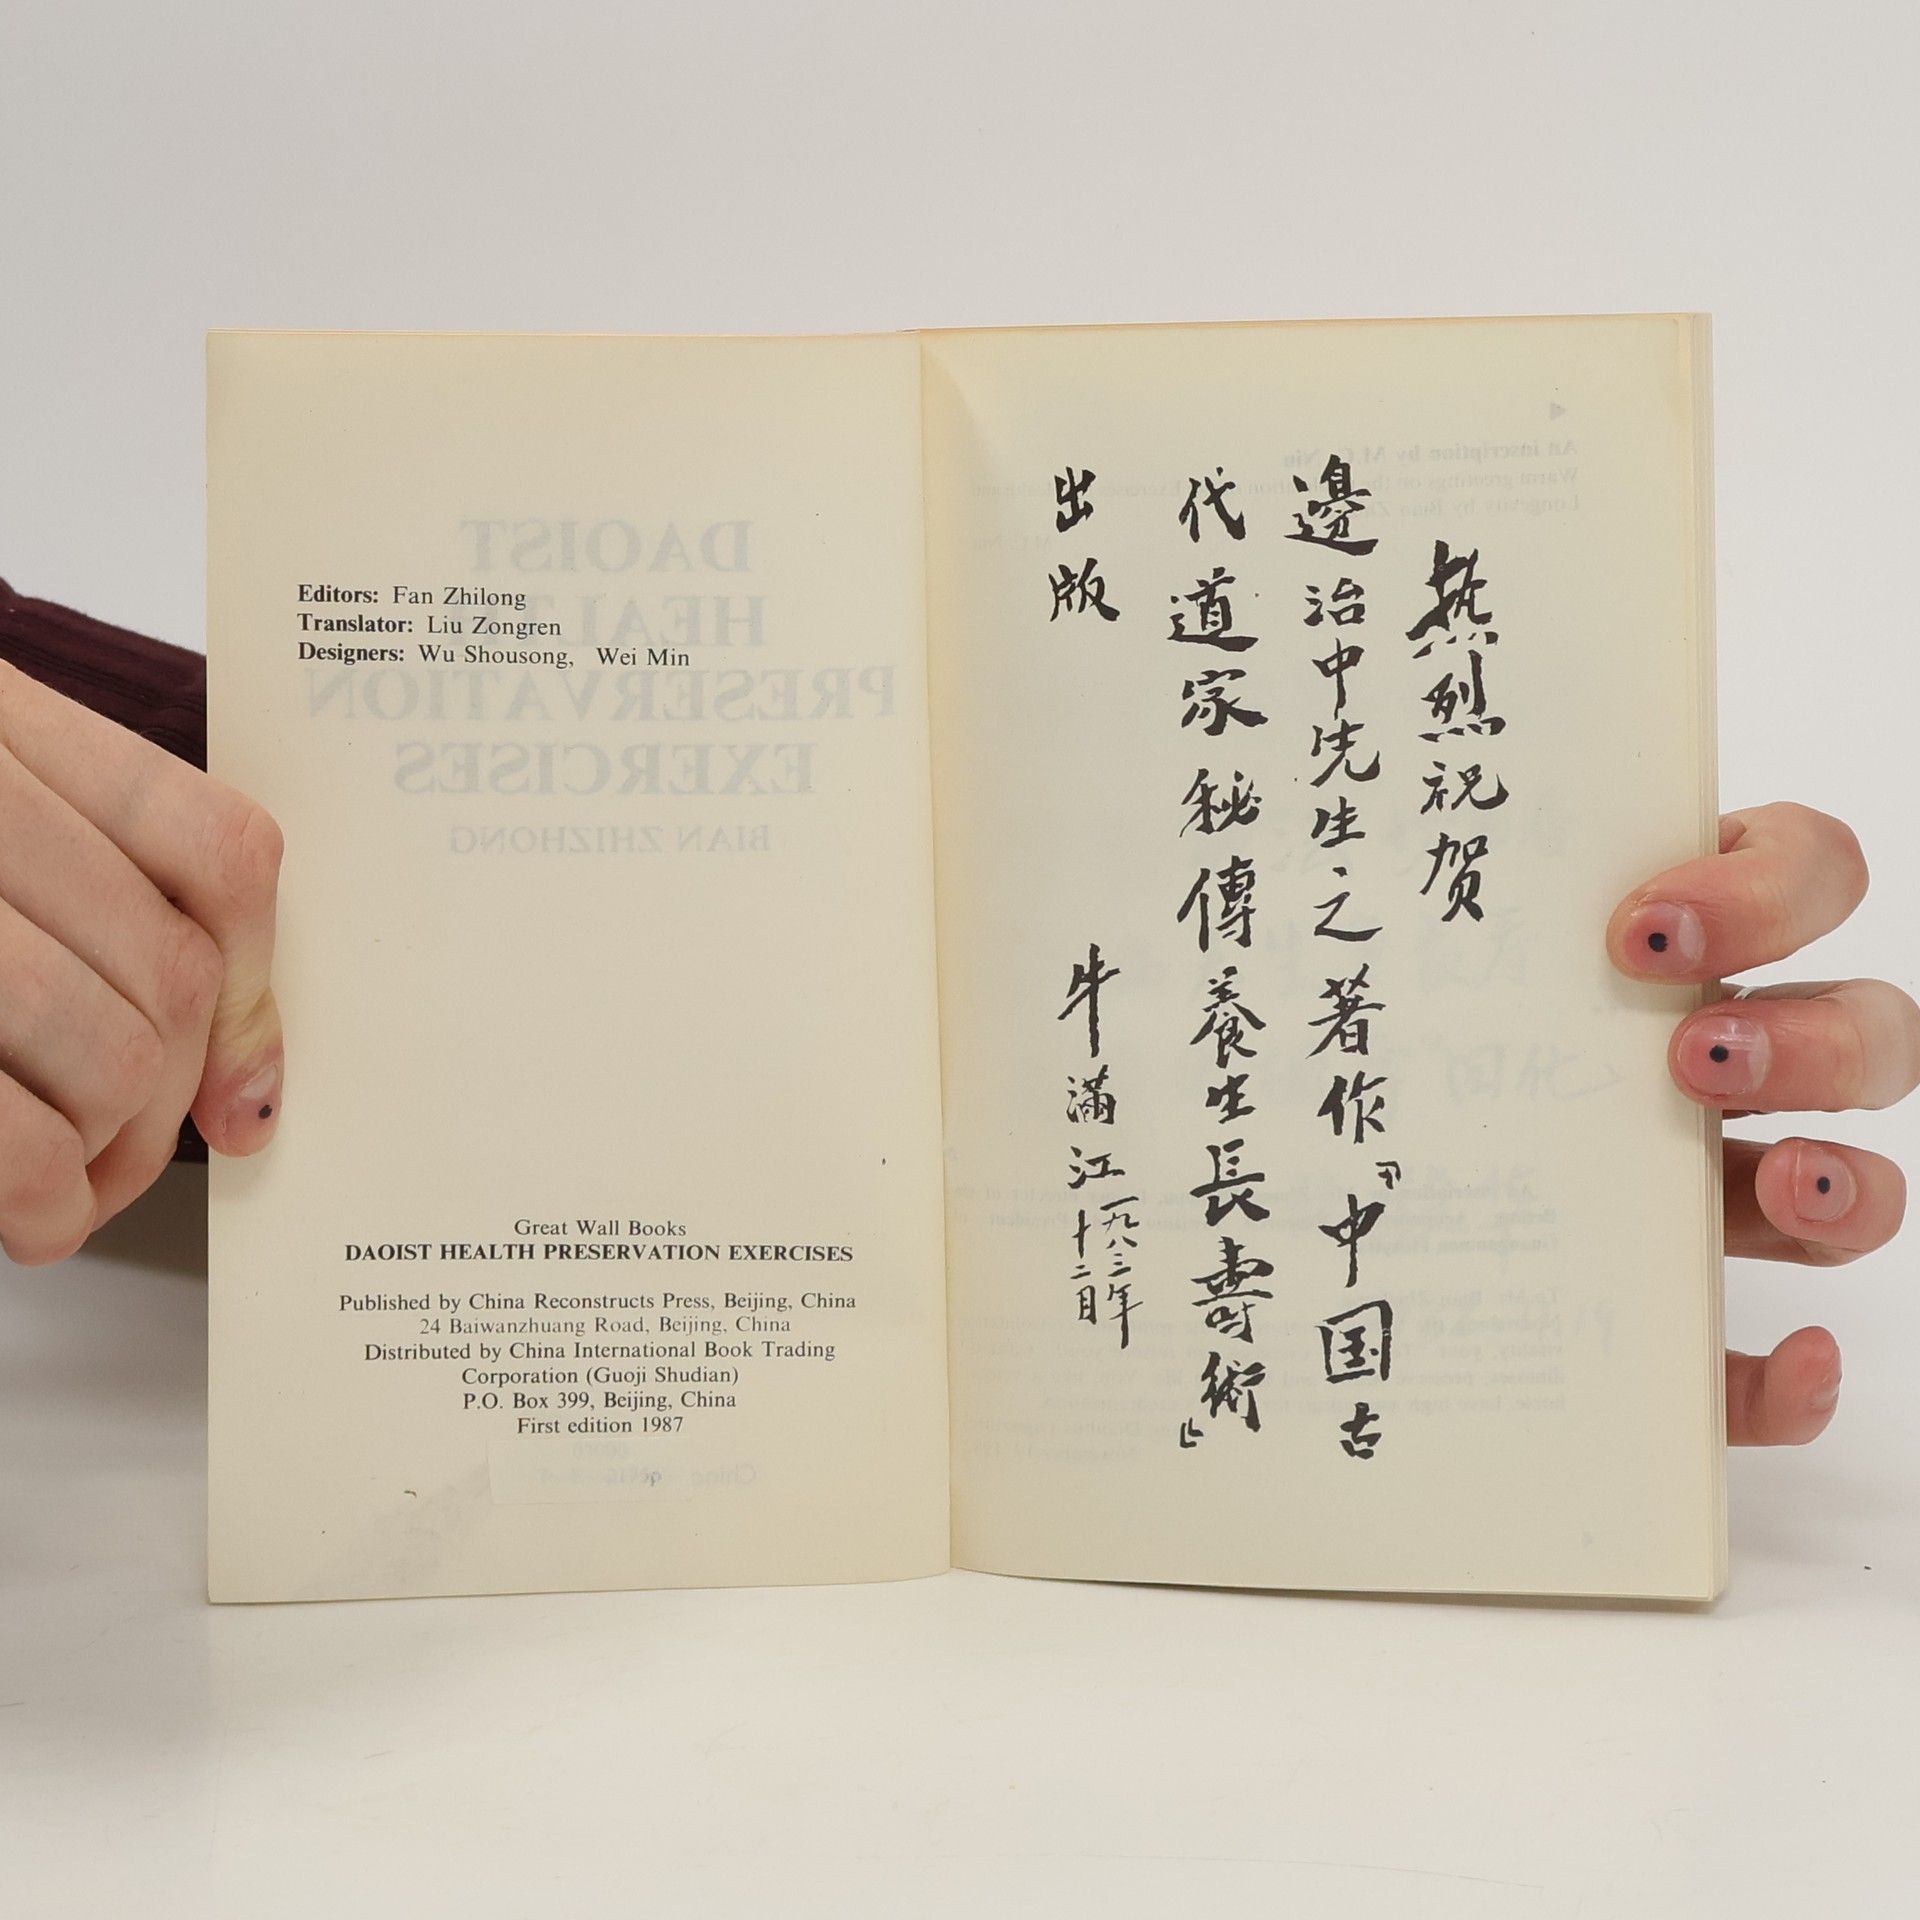 Editors: Fan Zhilong
Translator: Liu Zongren
Designers: Wu Shousong, Wei Min
Great Wall Books
DAOIST HEALTH PRESERVATION EXERCISES
Published by China Reconstructs Press, Beijing, China
24 Baiwanzhuang Road, Beijing, China
Distributed by China International Book Trading
Corporation (Guoji Shudian)
P.O. Box 399, Beijing, China
First edition 1987
DAOIST
HEALTH
PRESERVATION
EXERCISES
BIAN ZHIZHONG
热烈祝贺
邊治中先生之著作『中国古
代道家秘傳養生長壽術』
出版
牛滿江
一九八三年
十二月
An inscription by M.C. Niu